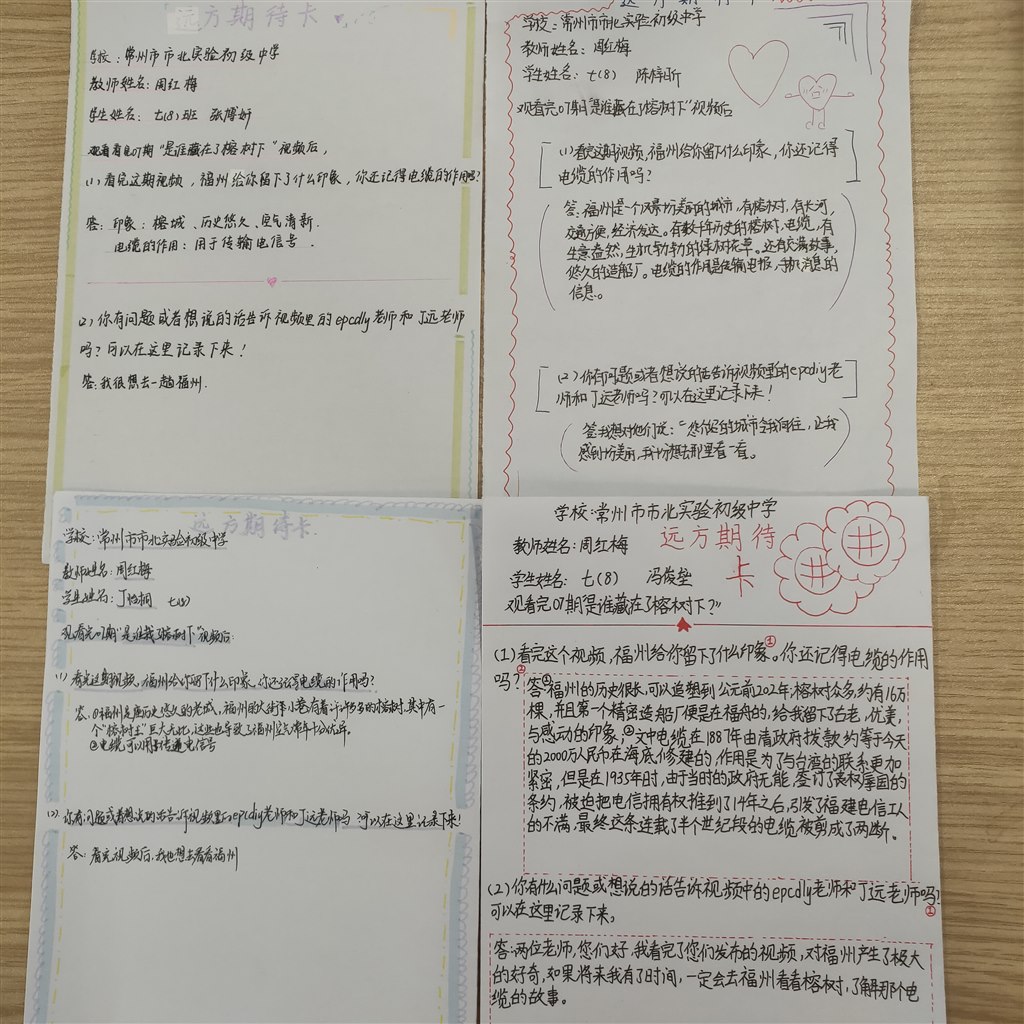 远方期待卡
学校：常州市市北实验初级中学
教师姓名：周红梅
学生姓名：七(8)班 张博妍
观看完07期“是谁藏在了榕树下”视频后，
(1)看完这期视频，福州给你留下了什么印象，你还记得电缆的作用吗？
答：印象：榕城、历史悠久、空气清新.
电缆的作用：用于传输电信号.
(2)你有问题或者想说的话告诉视频里的epcdly老师和丁远老师
吗？可以在这里记录下来！
答：我很想去一趟福州.
远方期待卡
学校：常州市市北实验初级中学
教师姓名：周红梅
学生姓名：七(8) 陈梓昕
观看完07期“是谁藏在了榕树下”视频后
(1)看完这期视频，福州给你留下什么印象，你还记得
电缆的作用吗？
答：福州是一个风景优美的城市，有榕树，有长河，
交通方便，经济发达。有数千年历史的榕树，电缆，有
生意盎然，生机勃勃的绿树花草。还有交满故事，
悠久的造船厂。电缆的作用是传输电报，手机消息的
信息。
(2)你有问题或者想说的话告诉视频里的epcdiy老
师和丁远老师吗？可以在这里记录下来！
答：我想对他们说：“您们的城市令我向往，让我
感到优美，我十分想去那里看一看。
远方期待卡
学校：常州市市北实验初级中学
教师姓名：周红梅
学生姓名：丁怡桐 七(8)
观看完07期“是谁藏在了榕树下”视频后：
(1)看完这期视频，福州给你留下什么印象，你还记得电缆的作用吗？
答：①福州是座历史悠久的老城，福州的大街小巷有着许许多多的榕树，其中有一
个“榕树王”巨大无比，这些也导致了福州空气常年十分优异。
②电缆可以用于传递电信号
(2)你有问题或者想说的话告诉视频里的epcdiy老师和丁远老师吗 可以在这里记录下来！
答：看完视频后，我也想去看看福州
学校：常州市市北实验初级中学
教师姓名：周红梅 远方期待
学生姓名：七(8) 冯俊垒 卡
观看完07期“是谁藏在了榕树下？”
(1)看完这个视频，福州给你留下了什么印象①。你还记得电缆的作用
吗？② 答：①福州的历史很长，可以追塑到公元前202年，榕树众多，约有16万
棵，并且第一个精密造船厂便是在福舟的，给我留下了古老，优美，
与感动的印象；②文中电缆在1887年由清政府拨款约等于今天
的2000万人民币在海底修建的，作用是为了与台湾的联系更加
紧密，但是在1935年时，由于当时的政府无能，签订了丧权辱国的
条约，被迫把电信拥有权推到了14年之后，引发了福建电信工人
的不满，最终这条连载了半个世纪段的电缆被剪成了两断。
(2)你有什么问题或想说的话告诉视频中的epcdly老师和丁远老师吗？
可以在这里记录下来。①
答：两位老师，您们好，我看完了您们发布的视频，对福州产生了极大
的好奇，如果将来我有了时间，一定会去福州看看榕树，了解那个电
缆的故事。